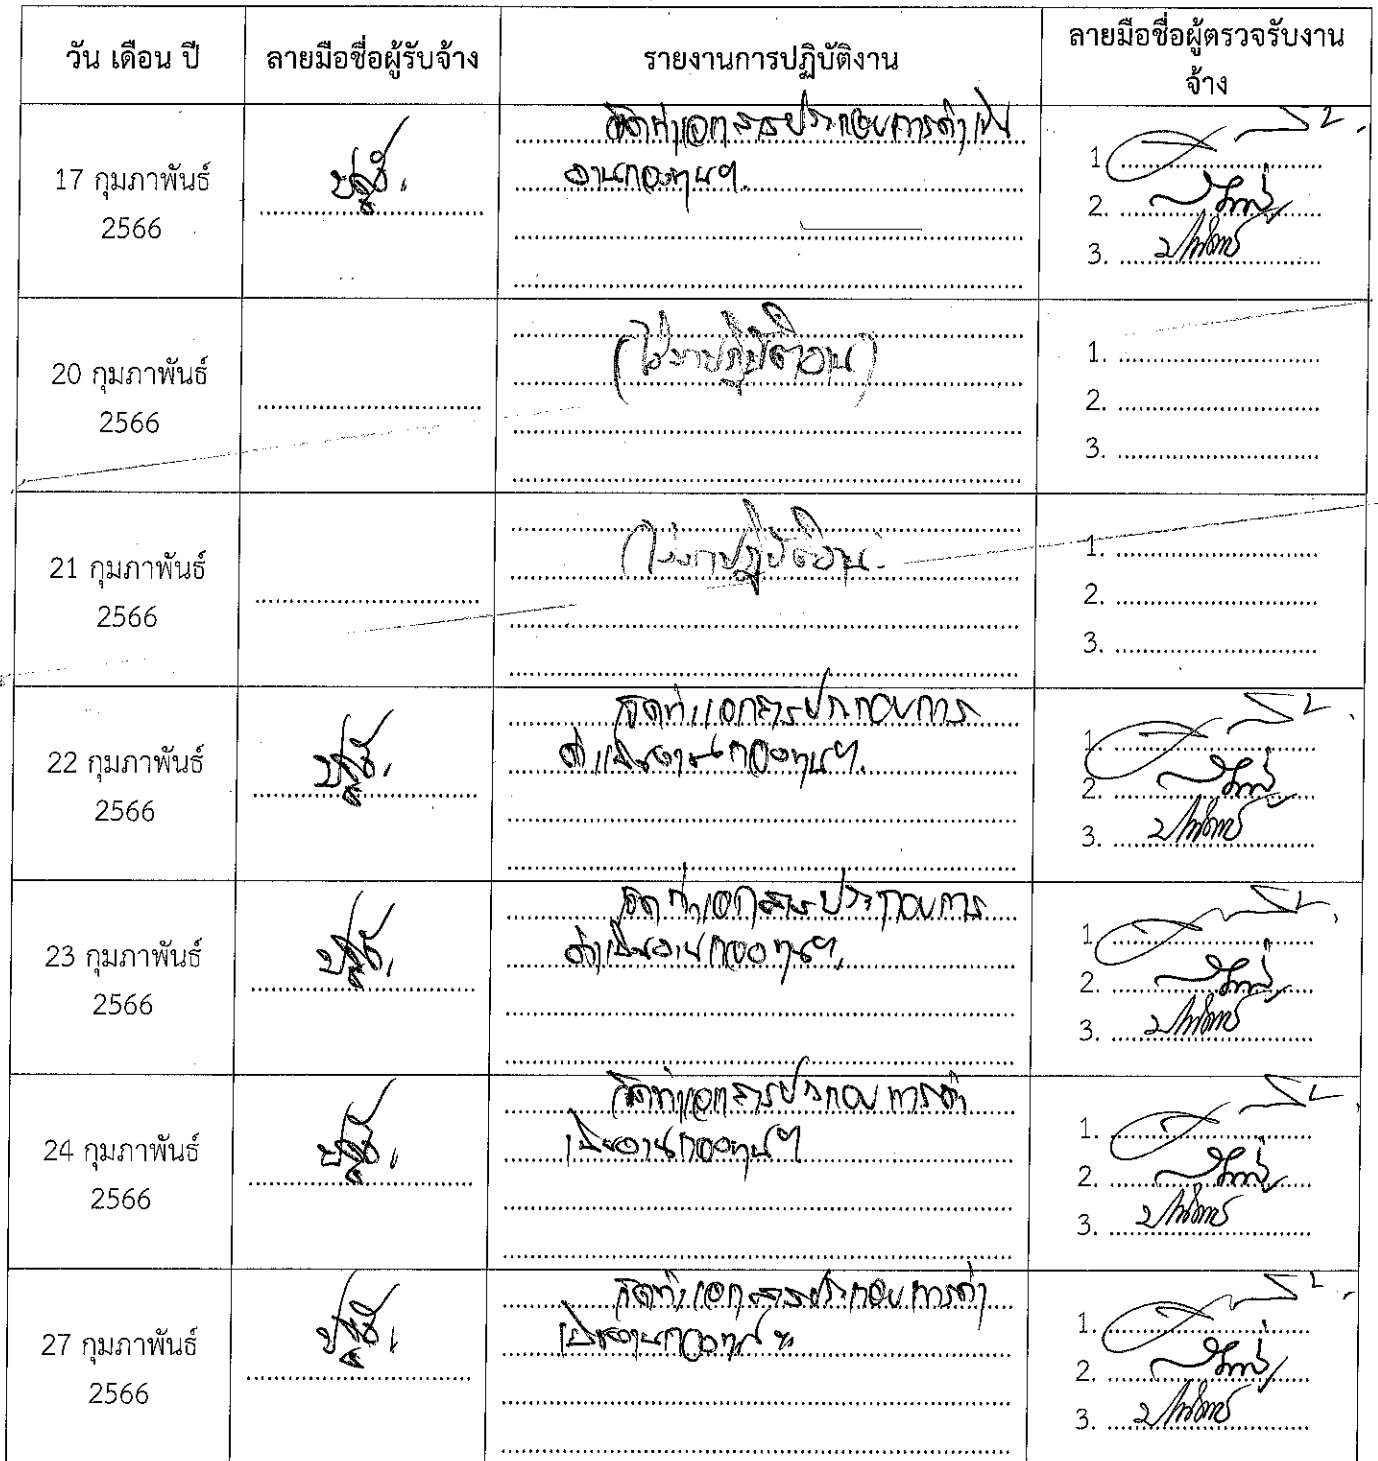 วัน เดือน ปี
ลายมือชื่อผู้รับจ้าง
รายงานการปฏิบัติงาน
ลายมือชื่อผู้ตรวจรับงาน
จ้าง
17 กุมภาพันธ์
2566
จัดทำเอกสารประกอบการดำเนิน
งานกองทุนฯ
1
2.
3.
20 กุมภาพันธ์
2566
(ไม่มาปฏิบัติงาน)
1.
2.
3.
21 กุมภาพันธ์
2566
(ไม่มาปฏิบัติงาน
1.
2.
3.
22 กุมภาพันธ์
2566
จัดทำเอกสารประกอบการ
ดำเนินงานกองทุนฯ
1.
2.
3.
23 กุมภาพันธ์
2566
จัดทำเอกสารประกอบการ
ดำเนินงานกองทุนฯ
1.
2.
3.
24 กุมภาพันธ์
2566
จัดทำเอกสารประกอบการดำ
เนินงานกองทุนฯ
1.
2.
3.
27 กุมภาพันธ์
2566
จัดทำเอกสารประกอบการดำ
เนินงานกองทุนฯ
1.
2.
3.